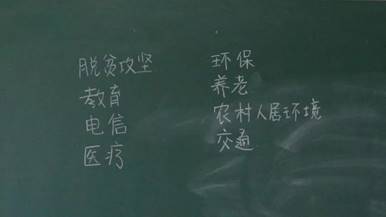 脱贫攻坚
教育
电信
医疗
环保
养老
农村人居环境
交通